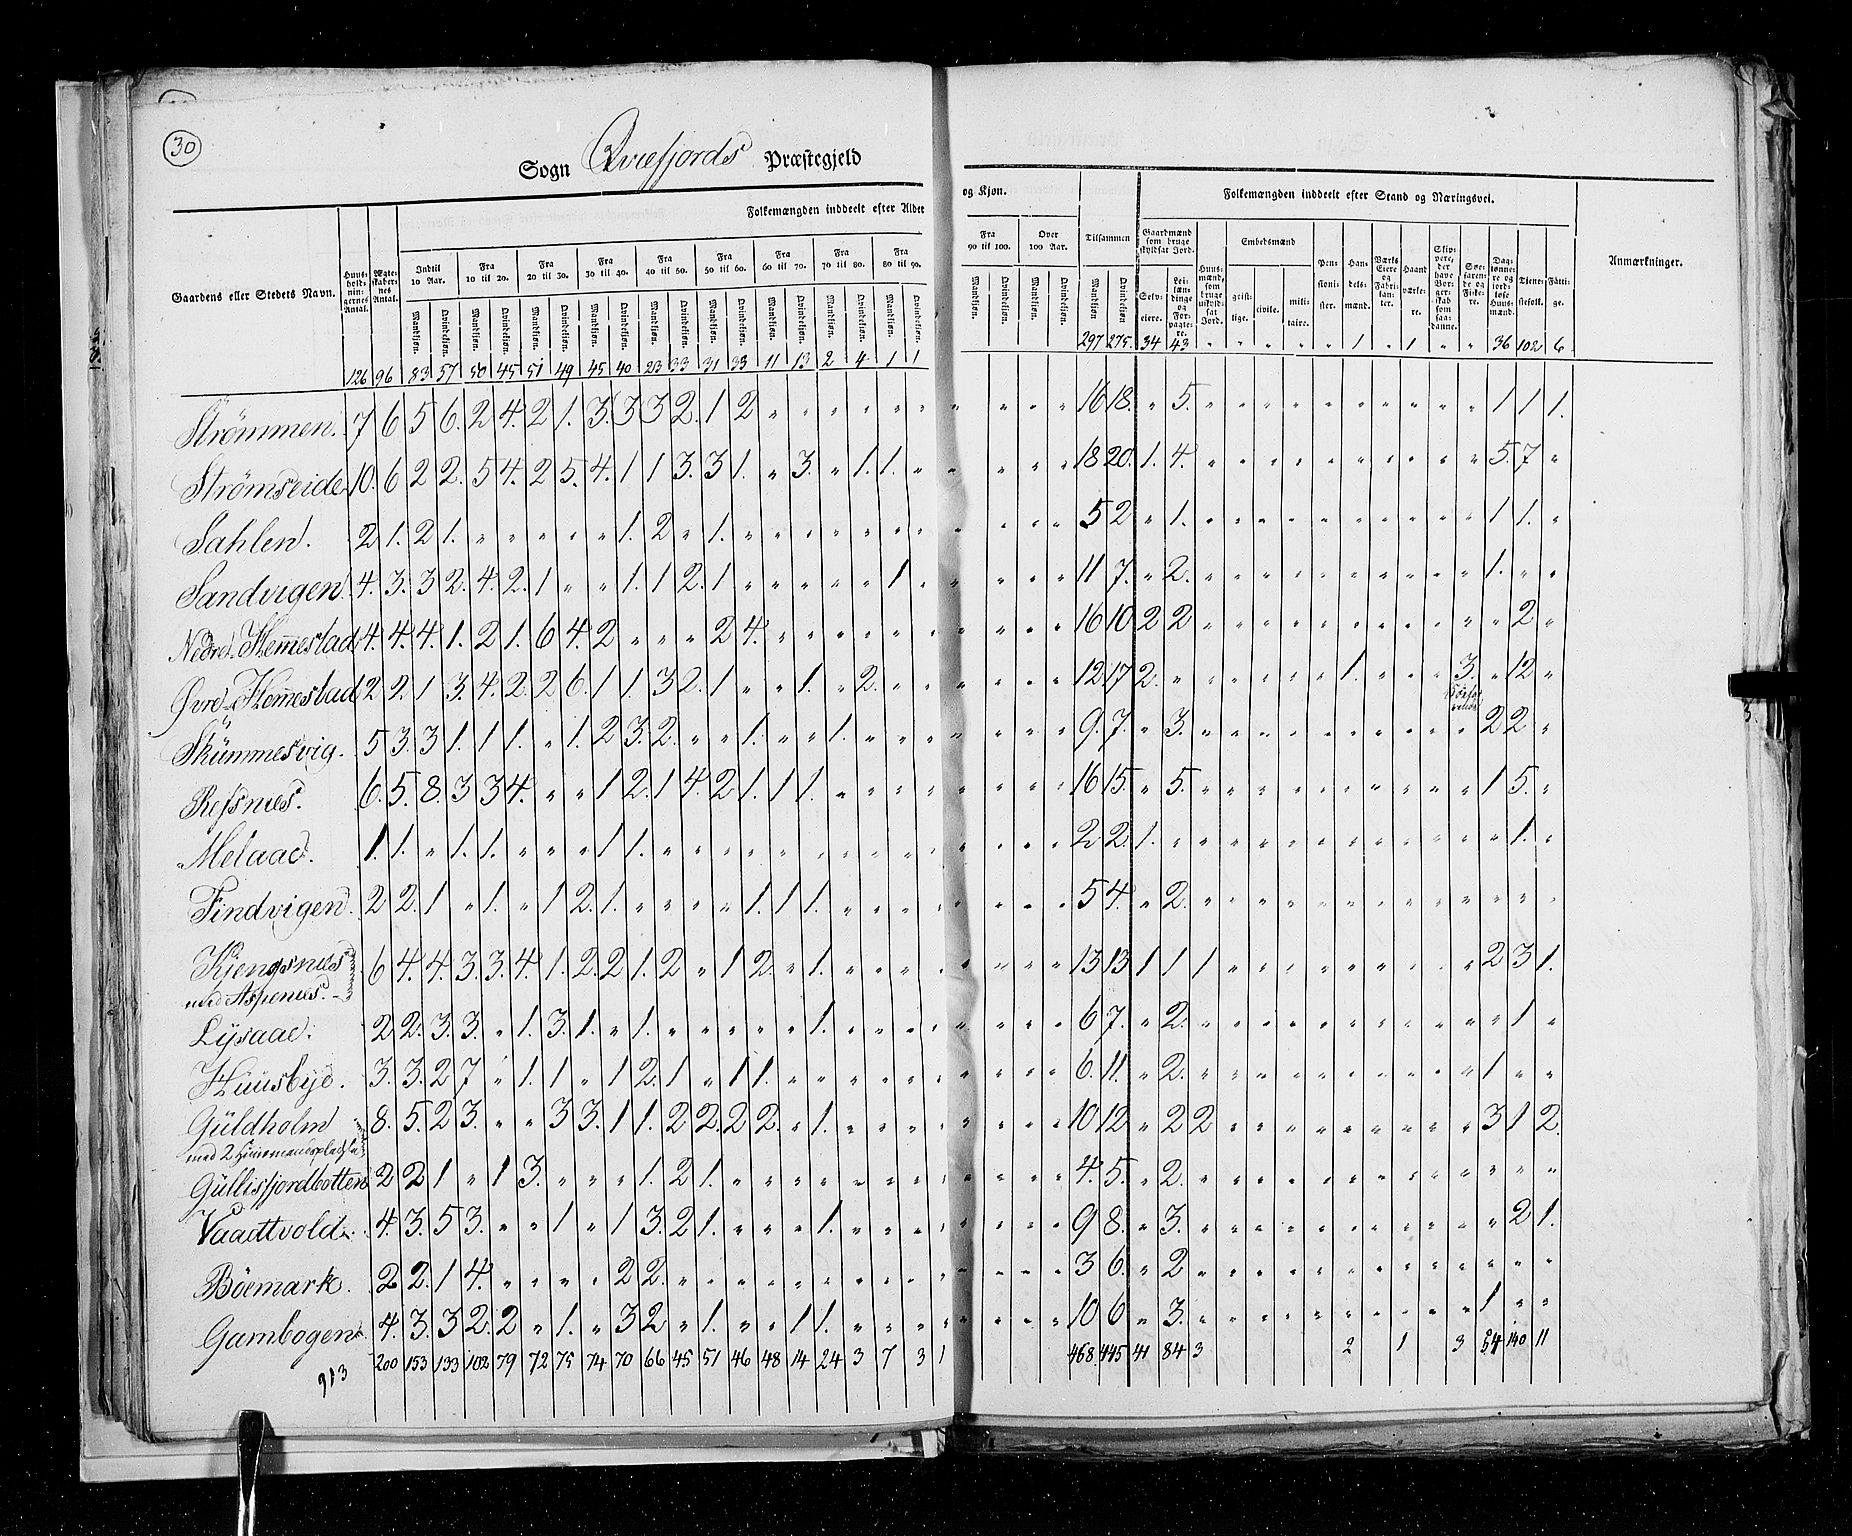 30
Sogn Qvæfjords Præstegjeld
Folkemængden inddeelt efter Alder og Kjøn.
Folkemængden inddeelt efter Stand og Næringsvei.
Gaardens eller Stedets Navn.
Huusholdningernes Antal.
Ægteskabernes Antal.
Indtil 10 Aar.
Fra 10 til 20.
Fra 20 til 30.
Fra 30 til 40.
Fra 40 til 50.
Fra 50 til 60.
Fra 60 til 70.
Fra 70 til 80.
Fra 80 til 90.
Fra 90 til 100.
Over 100 Aar.
Tilsammen
Mandkjøn. Qvindekjøn.
Gaardmænd som bruge skyldsat Jord.
Selveiere.
Leilændinge og Forpagtere.
Huusmænd, som bruge uskyldsat Jord.
Embedsmænd
geistlige. civile. militaire.
Pensionister.
Handelsmænd.
Værks Eiere og Fabrikanter.
Haandværkere.
Skippere, der have Borgerskab som saadanne.
Søefarende og Fiskere.
Daglønnere og jordløse Huusmænd.
Tienestefolk.
Fattige.
Anmærkninger.
126 96 83 57 50 45 51 49 45 40 23 33 31 33 11 13 2 4 1 1 297 275 34 43 " " " " " 1 " 1 " " 36 102 6
Strömmen. 7 6 5 6. 2 4. 2 1. 3. 3 3 2. 1 2 " " " " " " " " " " 16 18. " 5. " " " " " " " " " " 1 1 1.
Strömseide 10. 6 2 2. 5 4. 2 5. 4. 1 1 3. 3 1. " 3. " 1. 1. " " " " " 18 20. 1. 4. " " " " " " " " " " 5. 7 "
Sahlen. 2 1. 2 1. " " " " " 1. 2 " 1. " " " " " " " " " " " 5 2 " 1. " " " " " " " " " " 1 1. "
Sandvigen. 4. 3. 3 2. 4. 2. 1 " " 1. 1 2. 1 " " " " " 1 " " " " " 11 7. " 2. " " " " " " " " " " 1. " "
Nedre Hemmestad 4. 4. 4. 1. 2 1. 6 4. 2 " " " 2 4. " " " " " " " " " " 16 10 2 2 " " " " " " " " " " " 2 "
Øvre Hemmestad 2 2. 1 3. 4. 2. 2 6. 1 1. 3 2. 1 " " 1. " 2. " " " " " " 12. 17 2. " " " " " " 1. " " " 3. " 12 "
Skümmesvig. 5 3. 3 1. 1 1. " 1. 2 3. 2. " " 1. " " 1. " " " " " " 9. 7. " 3. " " " " " " " " " " 2 2 "
Refsnes. 6. 5. 8. 3 3 4. " " 1 2. 1 4. 2 1. 1 1. " " " " " " " " 16 15. " 5. " " " " " " " " " " 1 5. "
Melaae. 1. 1. " 1. 1. " " " 1 1. " " " " " " " " " " " " " " 2 2. 1. " " " " " " " " " " " " 1. "
Findvigen. 2 2. 1 " 1. " 1 2. 1. " " " " 1. 1 1. " " " " " " " " 5 4. " 2. " " " " " " " " " " " " "
Kjengsnes
med Aspenes. 6 4. 4. 3. 3. 4. 1. 2. 2 1. 2 " 1 2. " 1. " " " " " " " " 13 13 1 1 1 " " " " " " " " " 2 3 1.
Lysaae. 2 2. 3. 3. " 1. 3. 1. " 1. " " " " " 1. " " " " " " " " 6 7. " 2. " " " " " " " " " " " 1 "
Huusbye. 3. 3. 2 7 " 1. 1 " 1 2. 1 " 1 1. " " " " " " " " " " 6. 11. " 2. " " " " " " " " " " 1 " "
Güldholm
med 2 Huusmandspladse 8. 5. 2 3. " " 3 3. 1 1. 2 2. 2 2. " 1. " " " " " " " " 10 12 " 2 2 " " " " " " " " " 3 1 2.
Gullisfjordbotten 2 2 1 " 1 3. " " " 1. 2 1. " " " " " " " " " " " " 4. 5. " 2. " " " " " " " " " " " " "
Vaadtvold. 4. 3. 5 3. " " 1 " 1 3. 2 1. " " " 1. " " " " " " " " 9 8. " 3. " " " " " " " " " " " 2 1.
Böemark. 2 2. 1 4. " " " " 2 2. " " " " " " " " " " " " " " 3 6. " 2 " " " " " " " " " " " " "
Gambogen. 4. 3. 3 2. 2 " 1. " 3 2 " 1. " " 1 1. " " " " " " " " 10 6 " 3. " " " " " " " " " " 1 " "
913 200 153 133 102 79 72 75 74 70 66 45 51 46 48 14 24 3 7 3 1 468 445 41 84 3 2 1 3 54 140 11